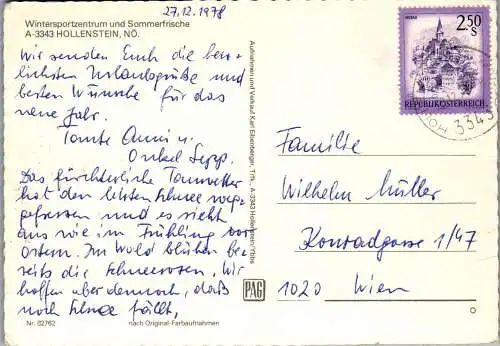 27.12.1978
Wintersportzentrum und Sommerfrische
A-3343 HOLLENSTEIN, NÖ.
Wir senden Euch die herz-
lichsten Urlaubsgrüße und
besten Wünsche für das
neue Jahr.
Tante Anni u.
Onkel Sepp.
Das fürchterliche Tauwetter
hat den letzten Schnee weg-
gefressen und es sieht
aus wie im Frühling vor
Ostern. Im Wald blühen be-
reits die Schneerosen. Wir
hoffen aber dennoch, daß
noch Schnee fällt.
Nr. 82762
nach Original-Farbaufnahmen
Aufnahmen und Verkauf Karl Eibenberger, Trfk., A-3343 Hollenstein/Ybbs
PAG
MURAU
2.50
S
REPUBLIK ÖSTERREICH
3343
Familie
Wilhelm Müller
Konradgasse 1/47
1020 Wien